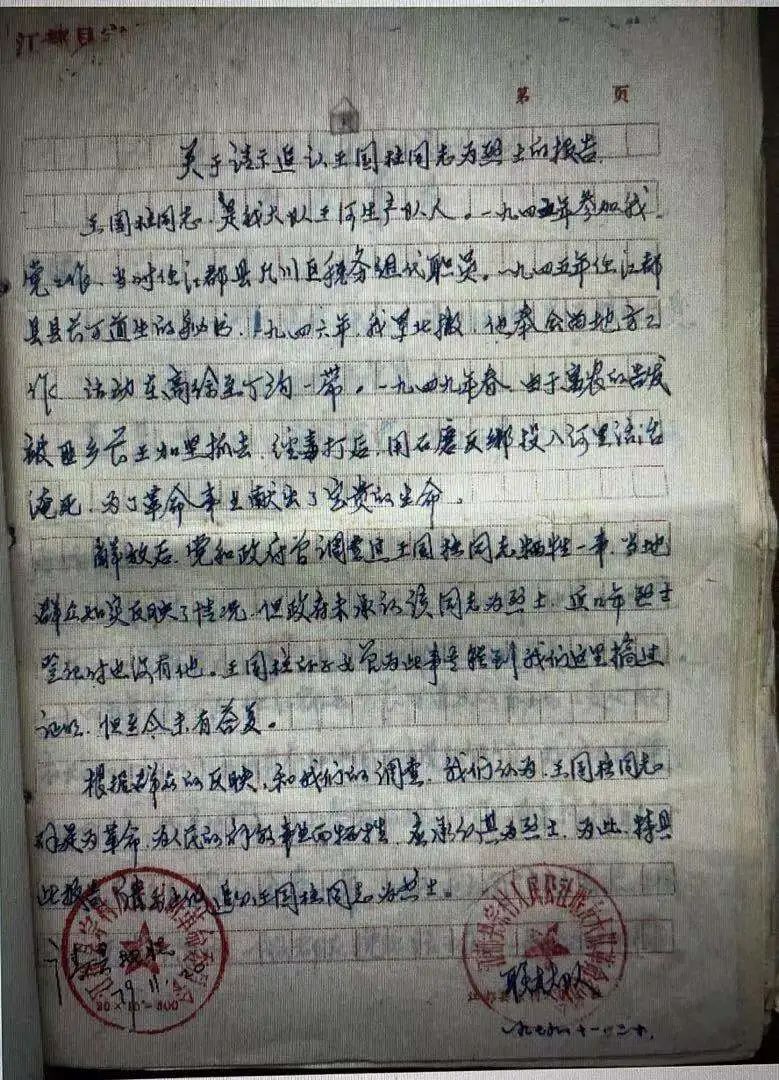 江都县
第 页
关于请示追认王国柱同志为烈士的报告
王国柱同志,是我大队王河生产队人。一九四五年参加我
党工作、当时任江都县 川区税务组代职员。一九四五年任江都
县县长方道生的秘书,一九四六年,我军北撤,他奉命为地方工
作 活动在 至丁沟一带。一九四九年春,由于 的告发
被 乡长王 抓去,经毒打后,用石磨反绑投入河里活活
淹死,为了革命事业献出了宝贵的生命。
解放后,党和政府曾调查过王国柱同志牺牲一事,当地
群众如实反映了情况,但政府未承认该同志为烈士,近 年烈士
登记时也没有他。王国柱的子女曾为此事 到我们这里搞过
证明,但至今未有答复。
根据群众的反映,和我们的调查,我们认为,王国柱同志
是为革命,为人民的解放事业而牺牲,应承认其为烈士,为此,特具
此报告 追认王国柱同志为烈士。
79.11.20
联 大队
一九七九.十一.二十.